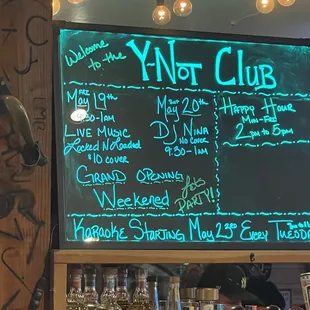 Welcome to the
Y-Not Club
Fri
May 19th
9:30-1am
Live Music
Locked N Loaded
$10 cover
Sat
May 20th
DJ Nina
No Cover
9:30-1am
Happy Hour
Mon-Fri
2pm to 5pm
Grand Opening
Weekened
Lets
Party!!
Karaoke Starting May 23rd Every Tuesd